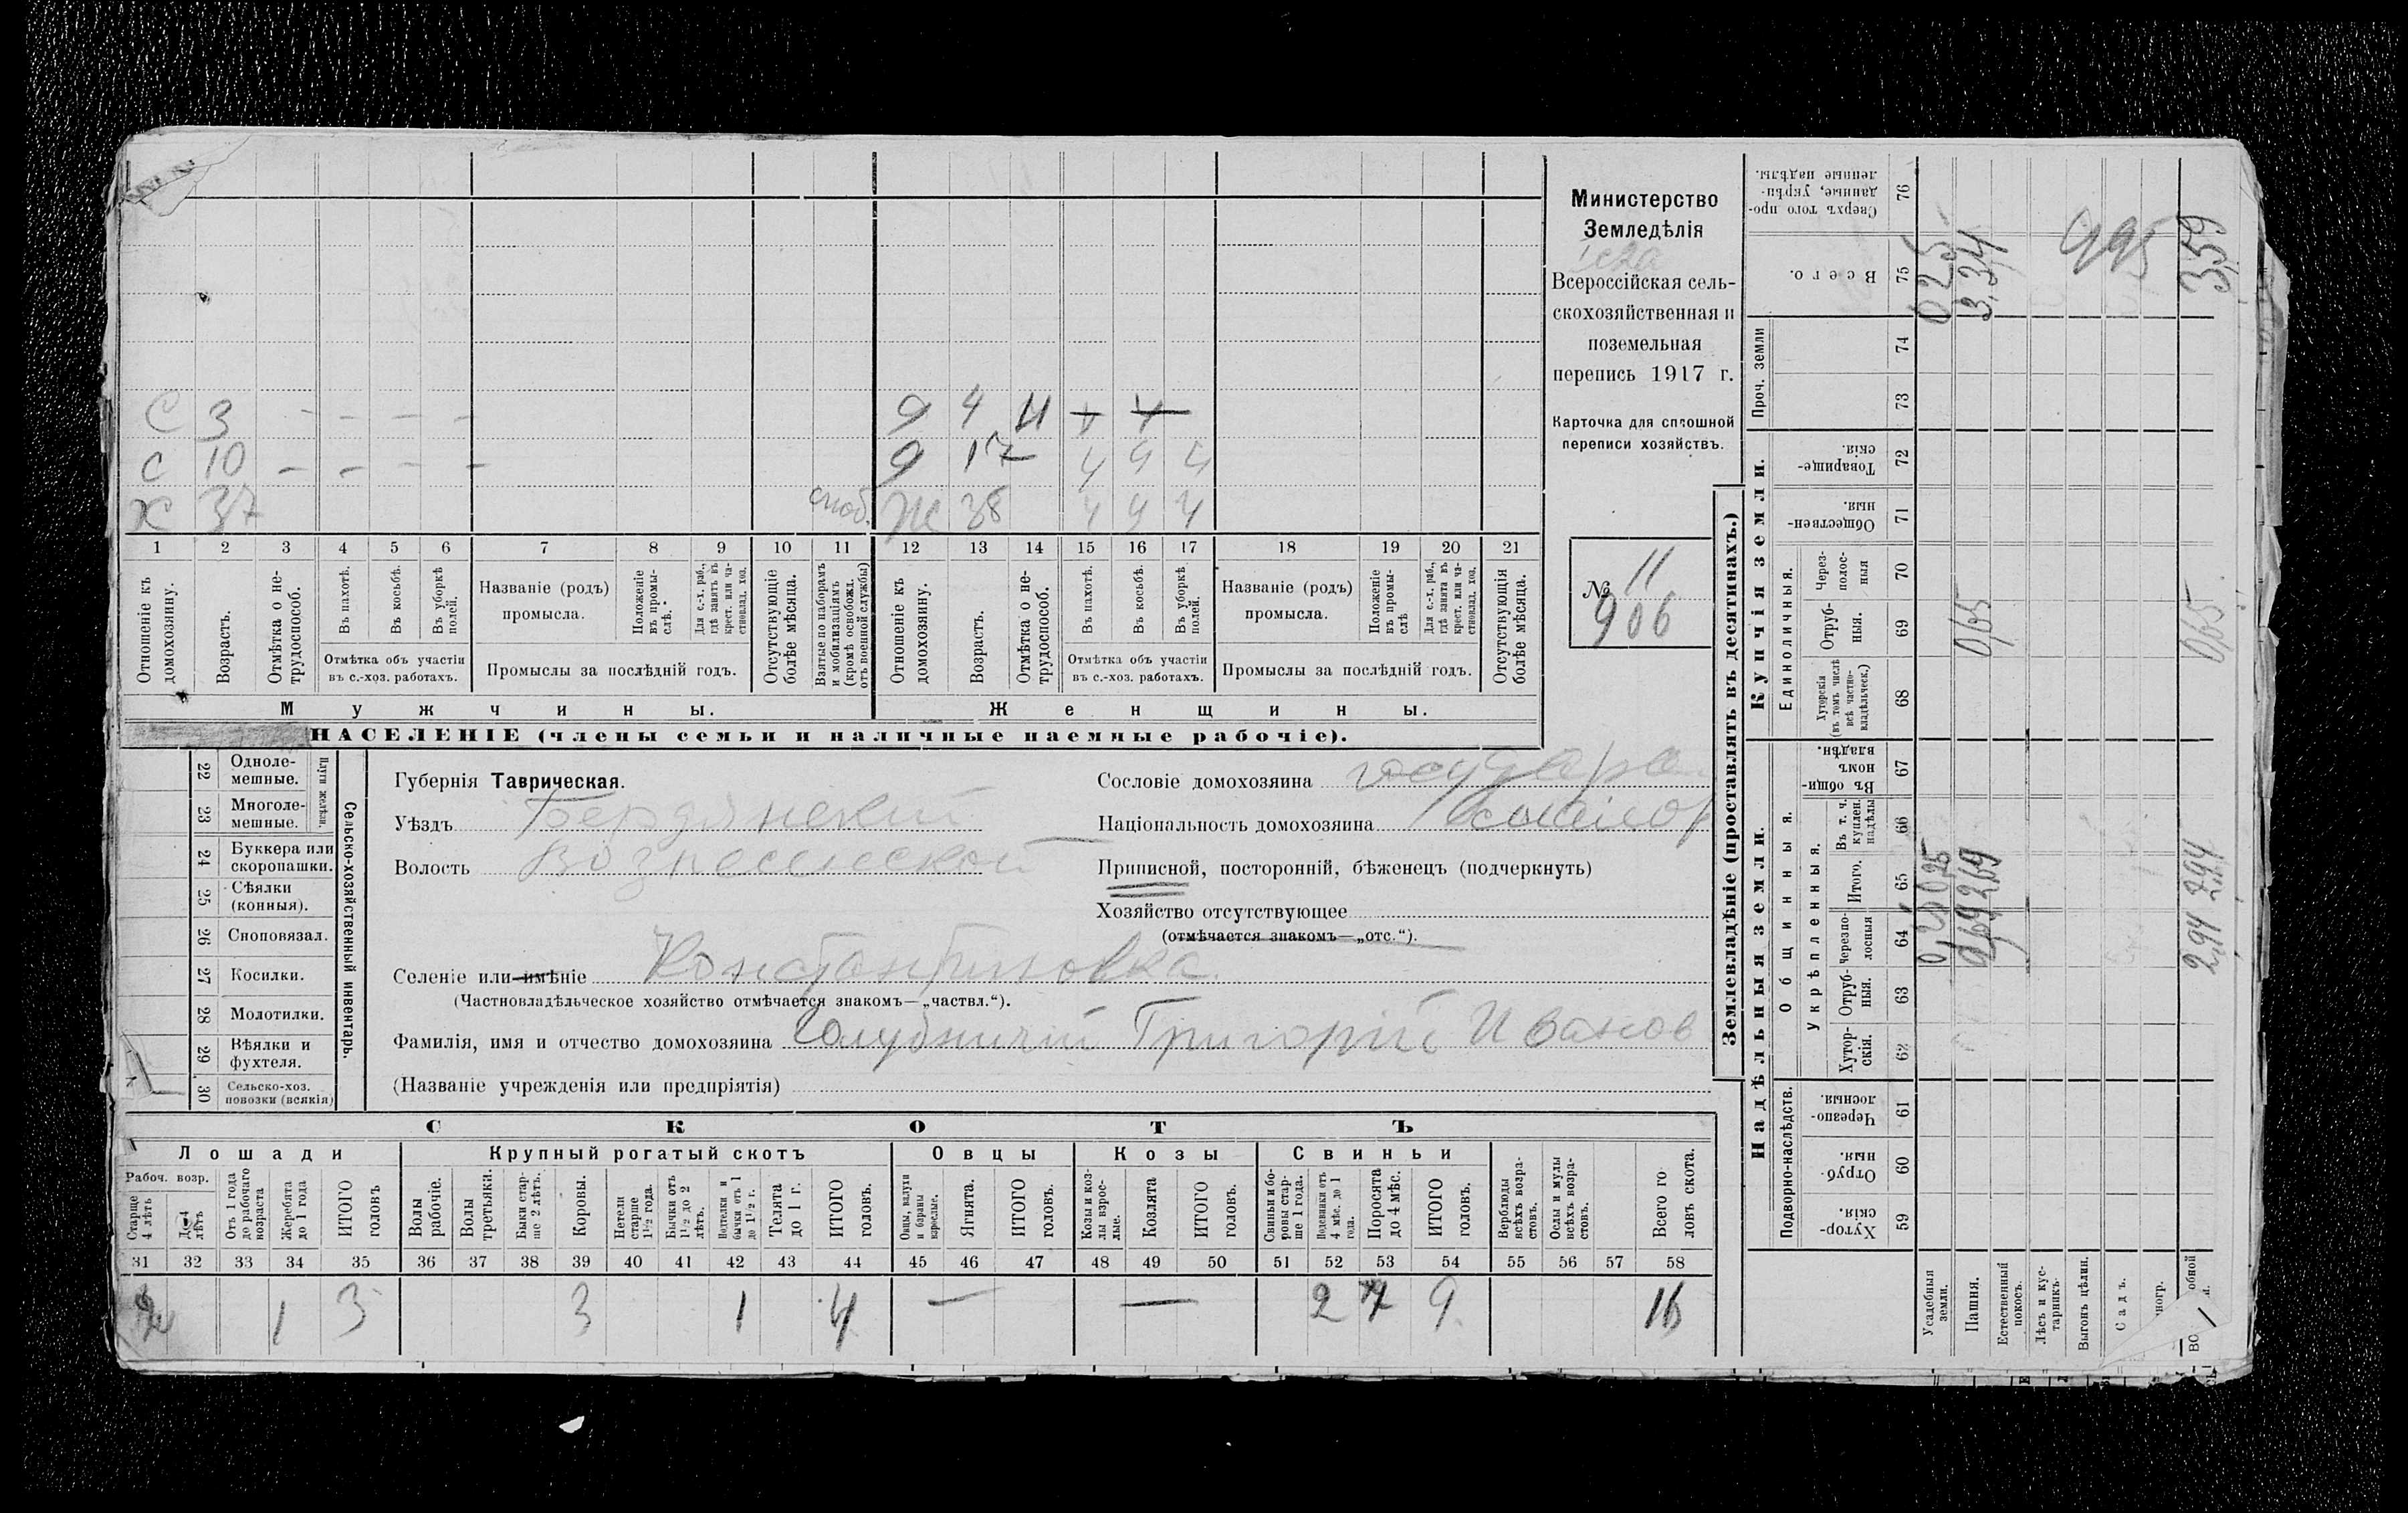 С 3 - - - - 9 4 И + +
С 10 - - - - 9 17 - У У У
Х 37 Ж 38 У У У
1 2 3 4 5 6 7 8 9 10 11 12 13 14 15 16 17 18 19 20 21
Отношеніе къ домохозяину.
Возрастъ.
Отмѣтка о не-трудоспособ.
Въ пахотѣ.
Въ косьбѣ.
Въ уборкѣ полей.
Отмѣтка объ участіи
въ с.-хоз. работахъ.
Названіе (родъ)
промысла.
Положеніе въ промы-слѣ.
Для с.-х. раб., гдѣ занятъ въ крест. или ча-стновлад. хоз.
Промыслы за послѣдній годъ.
Отсутствующіе болѣе мѣсяца.
Взятые по наборамъ и мобилизаціямъ (кромѣ освобожд. отъ военной службы)
Отношеніе къ домохозяину.
Возрастъ.
Отмѣтка о не-трудоспособ.
Въ пахотѣ.
Въ косьбѣ.
Въ уборкѣ полей.
Отмѣтка объ участіи
въ с.-хоз. работахъ.
Названіе (родъ)
промысла.
Положеніе въ промы-слѣ
Для с.-х. раб., гдѣ занята въ крест. или ча-стновлад. хоз.
Промыслы за послѣдній годъ.
Отсутствующія болѣе мѣсяца.
Мужчины. Женщины.
НАСЕЛЕНІЕ (члены семьи и наличные наемные рабочіе).
Министерство
Земледѣлія
Всероссійская сель-
скохозяйственная и
поземельная
перепись 1917 г.
Карточка для сплошной
переписи хозяйствъ.
№ 11
906
22 Одноле-мешные.
23 Многоле-мешные.
Плуги желѣзн.
24 Буккера или скоропашки.
25 Сѣялки (конныя).
26 Сноповязал.
27 Косилки.
28 Молотилки.
29 Вѣялки и фухтеля.
30 Сельско-хоз. повозки (всякія)
Сельско-хозяйственный инвентарь.
Губернія Таврическая.
Уѣздъ Бердянский
Волость Вознесенской
Сословіе домохозяина
Національность домохозяина
Приписной, посторонній, бѣженецъ (подчеркнуть)
Хозяйство отсутствующее
(отмѣчается знакомъ—„отс.“).
Селеніе или имѣніе Константиновка.
(Частновладѣльческое хозяйство отмѣчается знакомъ—„частвл.“).
Фамилія, имя и отчество домохозяина Голубничій Григорій Иванов
(Названіе учрежденія или предпріятія)
СКОТЪ
Лошади Крупный рогатый скотъ Овцы Козы Свиньи
Рабоч. возр.
Старше 4 лѣтъ
До 4 лѣтъ
Отъ 1 года до рабочаго возраста
Жеребята до 1 года
ИТОГО головъ
Волы рабочіе.
Волы третьяки.
Быки стар-ше 2 лѣтъ.
Коровы.
Нетели старше 1½ года.
Бычки отъ 1½ до 2 лѣтъ.
Подтелки и бычки отъ 1 до 1½ г.
Телята до 1 г.
ИТОГО головъ.
Овцы, валухи и бараны взрослые.
Ягнята.
ИТОГО головъ.
Козы и коз-лы взрос-лые.
Козлята
ИТОГО головъ.
Свиньи и бо-ровы стар-ше 1 года.
Подсвинки отъ 4 мѣс. до 1 года.
Поросята до 4 мѣс.
ИТОГО головъ.
Верблюды всѣхъ возра-стовъ.
Ослы и мулы всѣхъ возра-стовъ.
Всего го ловъ скота.
31 32 33 34 35 36 37 38 39 40 41 42 43 44 45 46 47 48 49 50 51 52 53 54 55 56 57 58
2 1 3 3 1 4 — — 2 7 9 16
Землевладѣніе (проставлять въ десятинахъ.)
Надѣльныя земли. Купчія земли. Проч. земли
Подворно-наслѣдств.
Общинныя.
Укрѣпленныя.
Единоличныя.
Хутор-скія. 59
Отруб-ныя. 60
Черезпо-лосныя. 61
Хутор-скія. 62
Отруб-ныя. 63
Черезпо-лосныя 64
Итого. 65
Въ т. ч. куплен. надѣлы 66
Въ общи-номъ владѣн. 67
Хуторскія (въ томъ числѣ всѣ частно-владѣльческ.) 68
Отруб-ныя. 69
Через-полос-ныя 70
Обществен-ныя. 71
Товарище-скія. 72
73
74
Всего. 75
Сверхъ того про-данные, укрѣп-ленные надѣлы. 76
Усадебныя земли. 0,25 0,25 0 25
Пашня. 2,69 2,69 0,65 3,34
Естественный покосъ.
Лѣсъ и кус-тарникъ.
Выгонъ цѣлин.
Садъ.
2,94 2,94 0,65 3,59
995